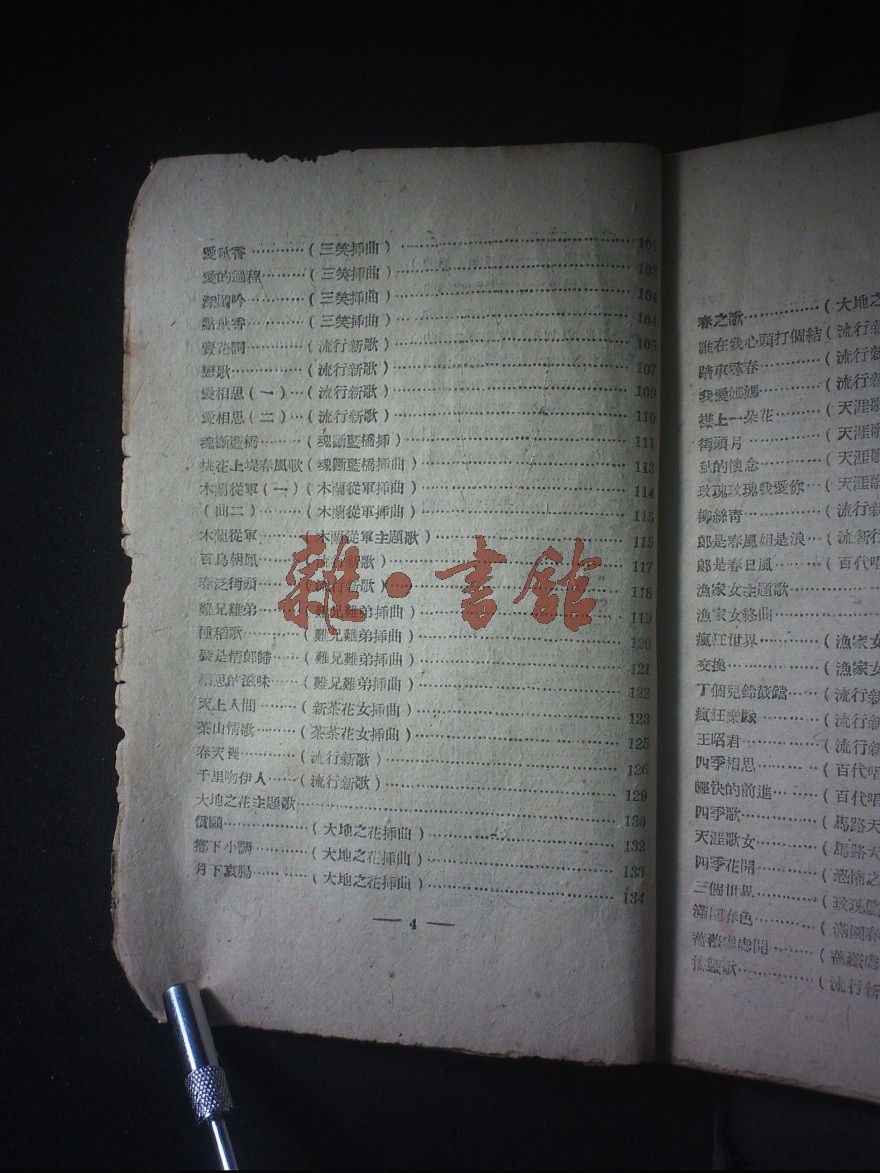 愛秋香…………(三笑揷曲)……………………101
愛的過程………(三笑揷曲)……………………103
深閨吟…………(三笑揷曲)……………………104
點秋香…………(三笑揷曲)……………………104
賣花詞…………(流行新歌)……………………105
戀歌……………(流行新歌)……………………107
愛相思(一)…(流行新歌)……………………109
愛相思(二)…(流行新歌)……………………110
魂斷藍橋………(魂斷藍橋揷)…………………111
桃花上堤春風歌(魂斷藍橋揷曲)………………113
木蘭從軍(一)(木蘭從軍揷曲)………………114
(仝二)………(木蘭從軍揷曲)………………115
木蘭從軍………(木蘭從軍主題歌)……………115
百鳥朝鳳………(流行新歌)……………………117
春泛街頭………(流行新歌)……………………118
難兄難弟………(難兄難弟揷曲)………………119
種稻歌…………(難兄難弟揷曲)………………120
疑是情郎歸……(難兄難弟揷曲)………………121
相思的滋味……(難兄難弟揷曲)………………122
天上人間………(新茶花女揷曲)………………123
茶山情歌………(茶茶花女揷曲)………………125
春天裡…………(流行新歌)……………………126
千里吻伊人……(流行新歌)……………………129
大地之花主題歌……………………………………130
償願……………(大地之花揷曲)………………132
鄉下小調………(大地之花揷曲)………………133
月下哀腸………(大地之花揷曲)………………134
— 4 —
春之歌…………(大地之
誰在我心頭打個結(流行新
踏車尋春………(流行新
我愛媽媽………(流行新
襟上一朵花……(天涯歌
街頭月…………(天涯歌
秋的懷念………(天涯歌
玫瑰玫瑰我愛你…(天涯歌
柳絲靑…………(流行新
郞是春風姐是浪…(流新行
郞是春日風……(百代唱
漁家女主題歌
漁家女終曲
瘋狂世界………(漁家女
交換……………(漁家女
丁個兒鈴鼓鐺…(流行新
瘋狂樂隊………(流行新
王昭君…………(流行新
四季相思………(百代唱
輕快的前進……(百代唱
四季歌…………(馬路天
天涯歌女………(馬路天
四季花開………(恐怖之
三個世界………(玫瑰
滿園春色………(滿園春
處處開…………
歌………………(流行新
雜·書館